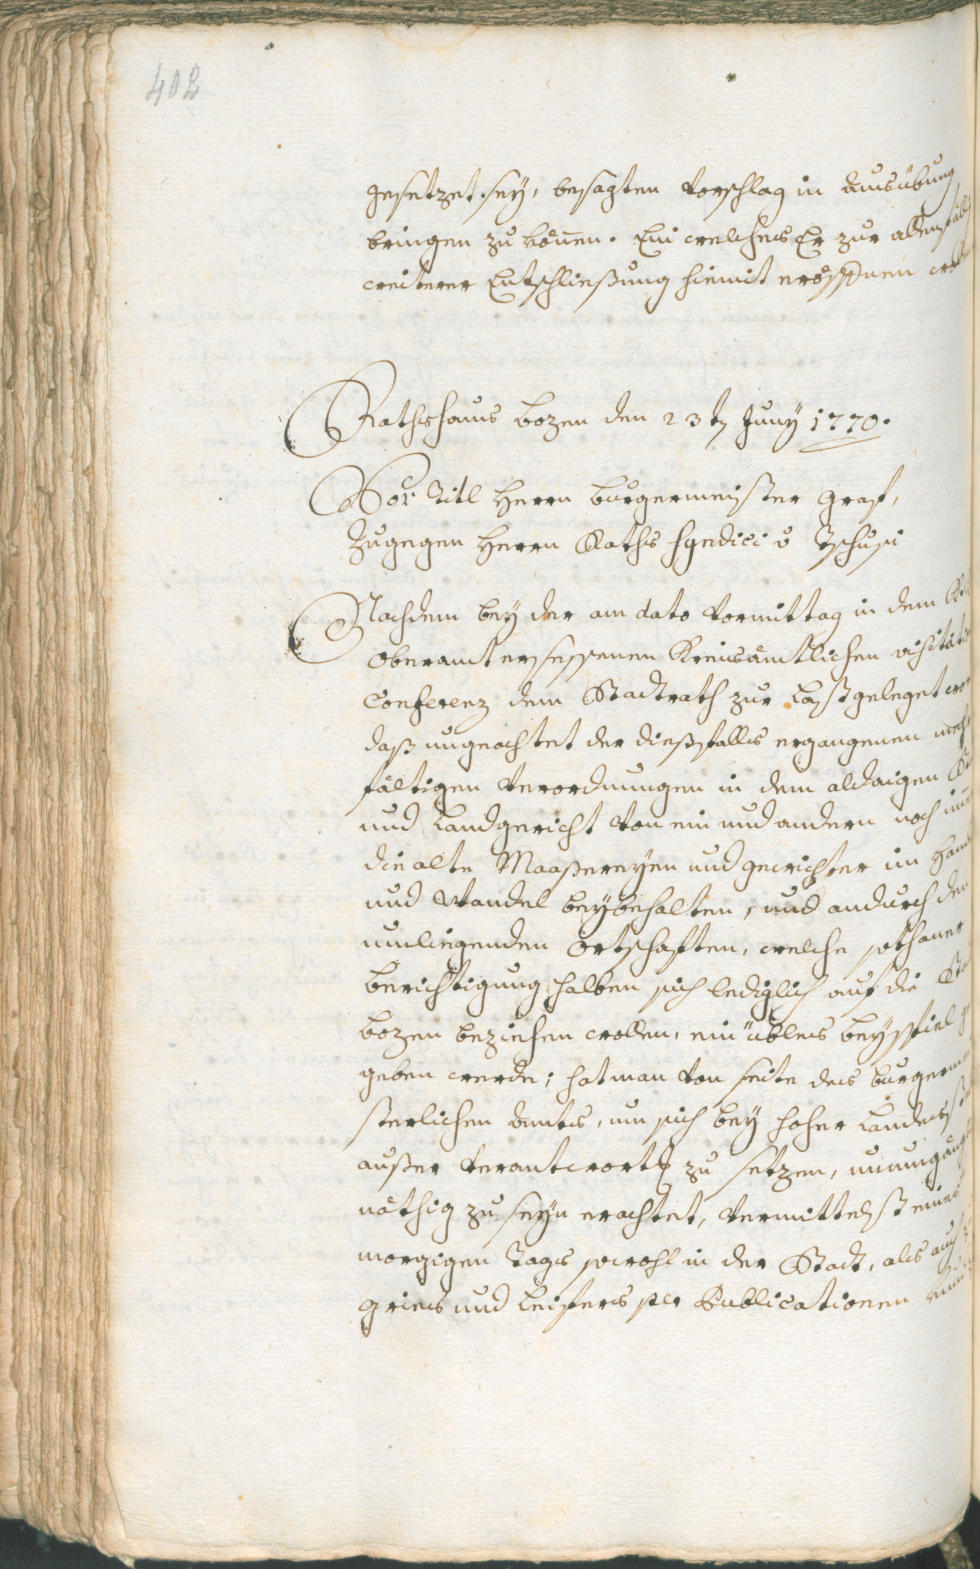 402
gesetzet sey, besagten Vorschlag in Ausübung
bringen zu können. Ein welches Er zur allenfäll
weiterer Entschließung hiemit eröffnen
Rathshaus Bozen den 23ten Juny 1770.
Vor Titl Herrn Burgermeister Graf,
Zugegen Herrn Raths Syndici v Tschusi
Nachdem bey der am dato Vormittag in dem
Oberamt ersessenen Kreisämtlichen Visitati
Conferenz dem Stadtrath zur Last geleget wor
daß ungeachtet der dießfalls ergangenen
fältigen Verordnungen in dem aldaigen
und Landgericht von ein und andern noch
die alte Maaßereyen und Gewichter im Han
und Wandel beybehalten, und andurch den
umliegenden Ortschaften, welche sothaner
Berichtigung halben sich lediglich auf die
Bozen beziehen wollen, ein übles Beyspiel
geben werde; hat man von Seite des Burgermei
sterlichen Amts, um sich bey hoher Landes
außer Verantwortg zu setzen, unumgäng
nöthig zu seyn erachtet, vermittelst eines
morgigen Tags sowohl in der Stadt, als auch
Gries und Leifers per Publicationen